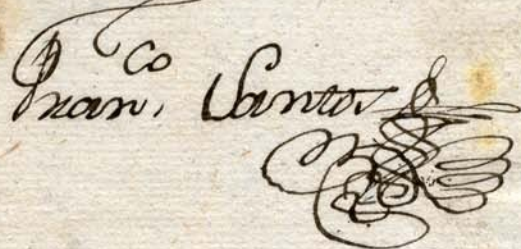 Fran.co Santos